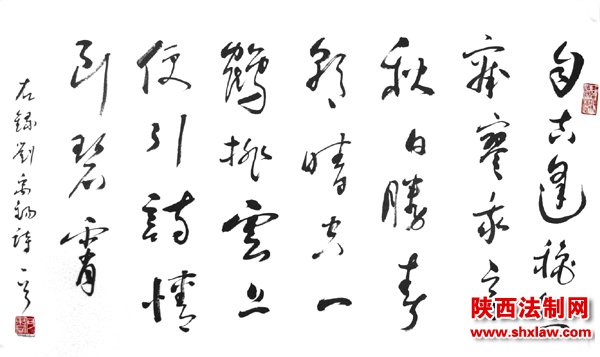 自古逢秋悲
寂寥我言
秋日勝春
朝晴空一
鶴排雲上
便引詩情
到碧霄
右録劉禹錫詩一首
陕西法制网
www.shxlaw.com